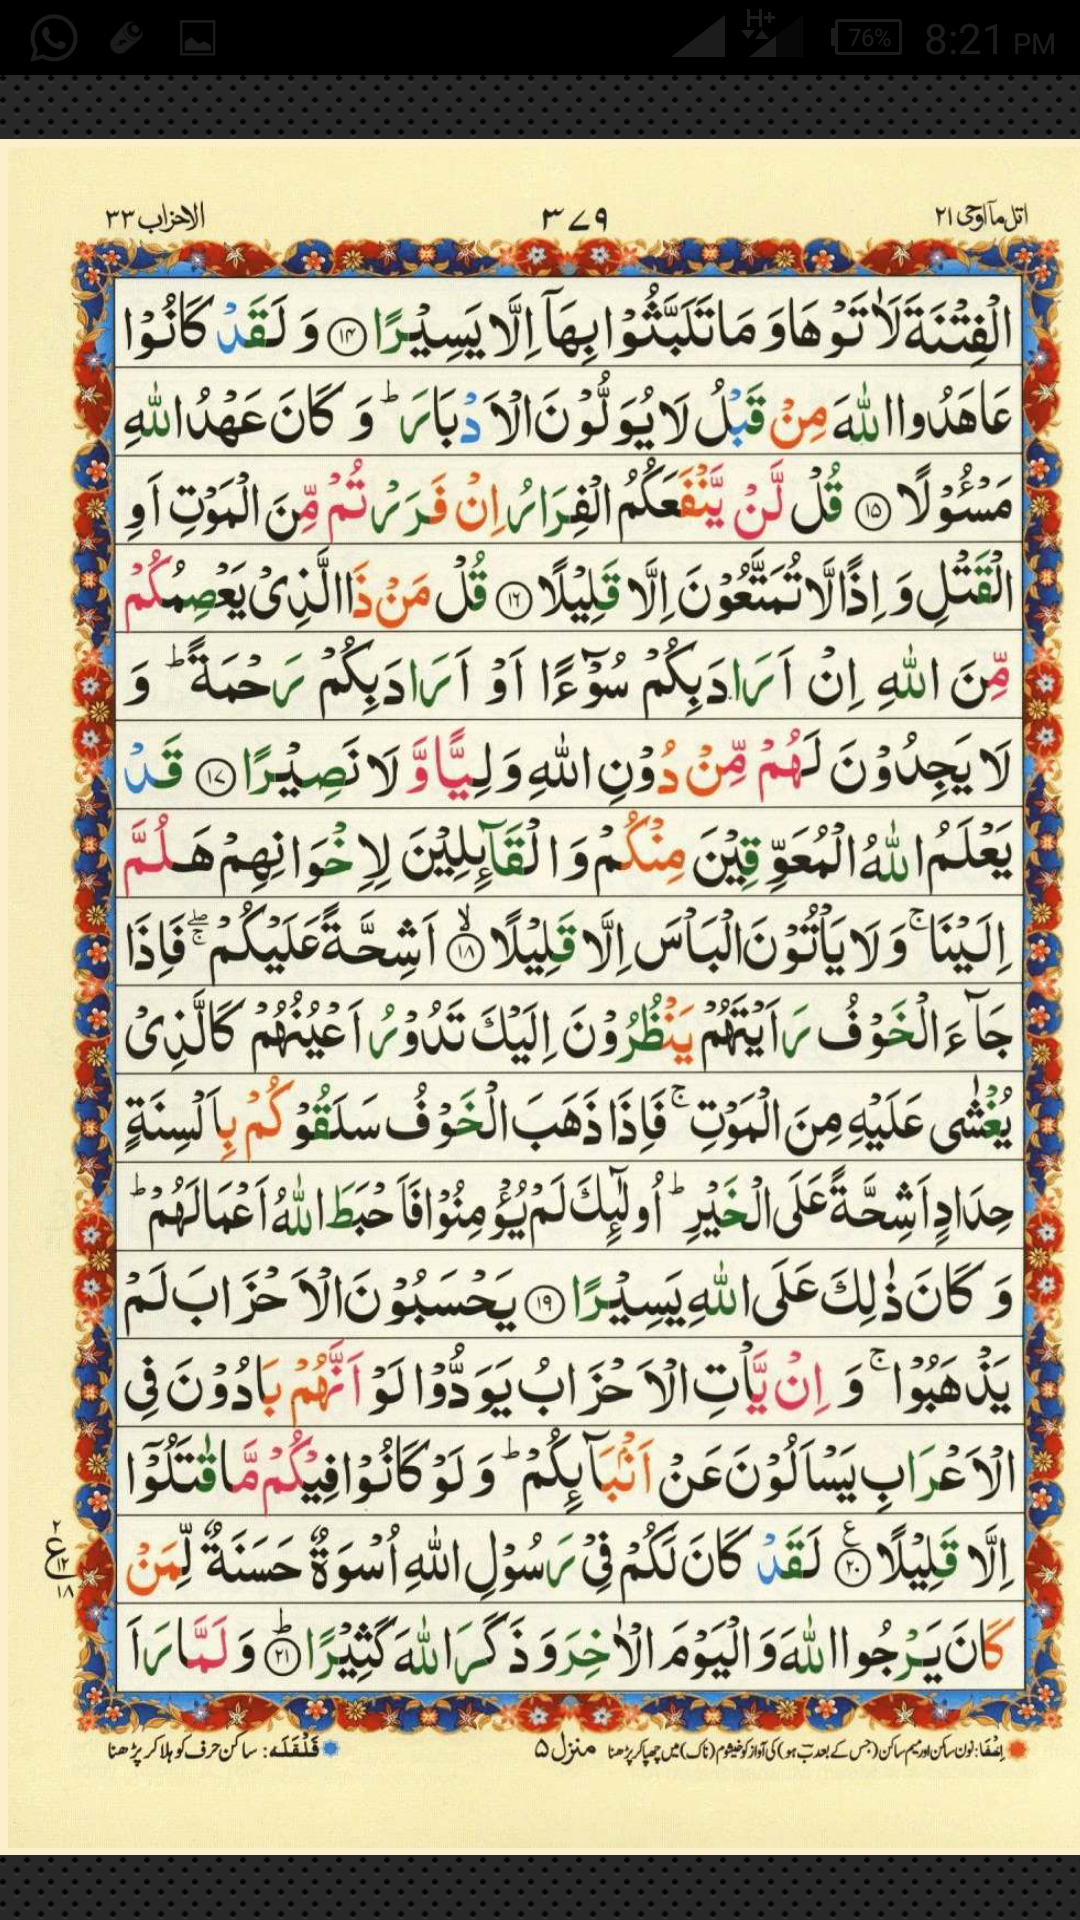 H+
76%
8:21 PM
اتل مآ اوحی ۲۱
۳۷۹
الاحزاب ۳۳
الْفِتْنَةَ لَاٰ تَوْهَا وَ مَا تَلَبَّثُوْا بِهَاۤ اِلَّا یَسِیْرًا ۱۴ وَ لَقَدْ كَانُوْا
عَاهَدُوا اللّٰهَ مِنْ قَبْلُ لَا یُوَلُّوْنَ الْاَدْبَارَ ؕ وَ كَانَ عَهْدُ اللّٰهِ
مَسْـُٔوْلًا ۱۵ قُلْ لَّنْ یَّنْفَعَكُمُ الْفِرَارُ اِنْ فَرَرْتُمْ مِّنَ الْمَوْتِ اَوِ
الْقَتْلِ وَ اِذًا لَّا تُمَتَّعُوْنَ اِلَّا قَلِیْلًا ۱۶ قُلْ مَنْ ذَا الَّذِیْ یَعْصِمُكُمْ
مِّنَ اللّٰهِ اِنْ اَرَادَ بِكُمْ سُوْٓءًا اَوْ اَرَادَ بِكُمْ رَحْمَةً ؕ وَ
لَا یَجِدُوْنَ لَهُمْ مِّنْ دُوْنِ اللّٰهِ وَلِیًّا وَّ لَا نَصِیْرًا ۱۷ قَدْ
یَعْلَمُ اللّٰهُ الْمُعَوِّقِیْنَ مِنْكُمْ وَ الْقَآىِٕلِیْنَ لِاِخْوَانِهِمْ هَلُمَّ
اِلَیْنَا ۚ وَ لَا یَاْتُوْنَ الْبَاْسَ اِلَّا قَلِیْلًا ۙ ۱۸ اَشِحَّةً عَلَیْكُمْ ۖۚ فَاِذَا
جَآءَ الْخَوْفُ رَاَیْتَهُمْ یَنْظُرُوْنَ اِلَیْكَ تَدُوْرُ اَعْیُنُهُمْ كَالَّذِیْ
یُغْشٰى عَلَیْهِ مِنَ الْمَوْتِ ۚ فَاِذَا ذَهَبَ الْخَوْفُ سَلَقُوْكُمْ بِاَلْسِنَةٍ
حِدَادٍ اَشِحَّةً عَلَى الْخَیْرِ ؕ اُولٰٓىِٕكَ لَمْ یُؤْمِنُوْا فَاَحْبَطَ اللّٰهُ اَعْمَالَهُمْ ؕ
وَ كَانَ ذٰلِكَ عَلَى اللّٰهِ یَسِیْرًا ۱۹ یَحْسَبُوْنَ الْاَحْزَابَ لَمْ
یَذْهَبُوْا ۚ وَ اِنْ یَّاْتِ الْاَحْزَابُ یَوَدُّوْا لَوْ اَنَّهُمْ بَادُوْنَ فِی
الْاَعْرَابِ یَسْاَلُوْنَ عَنْ اَنْۢبَآىِٕكُمْ ؕ وَ لَوْ كَانُوْا فِیْكُمْ مَّا قٰتَلُوْۤا
اِلَّا قَلِیْلًا ۲۰ ع لَقَدْ كَانَ لَكُمْ فِیْ رَسُوْلِ اللّٰهِ اُسْوَةٌ حَسَنَةٌ لِّمَنْ
۲
ع
۱۲
۱۸
كَانَ یَرْجُوا اللّٰهَ وَ الْیَوْمَ الْاٰخِرَ وَ ذَكَرَ اللّٰهَ كَثِیْرًا ؕ ۲۱ وَ لَمَّا رَاَ
اِخْفَا: نون ساکن اور میم ساکن (جس کے بعد ب ہو) کی آواز کو خیشوم (ناک) میں چھپا کر پڑھنا
منزل ۵
قَلْقَلَه: ساکن حرف کو ہلا کر پڑھنا